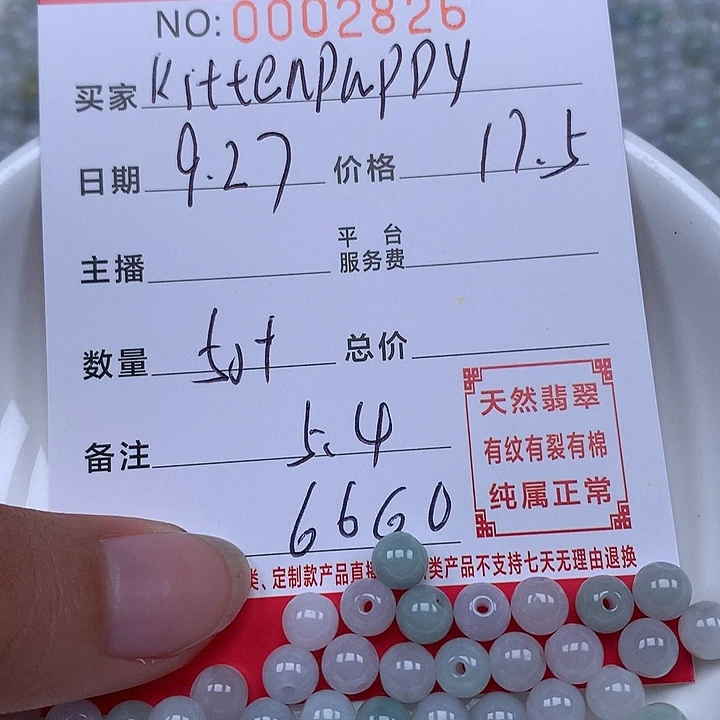 NO: 0002826
买家 Kittenpuppy
日期 9.27 价格 17.5
主播 平台服务费
数量 50+ 总价
备注 5.4
6660
天然翡翠
有纹有裂有棉
纯属正常
类、定制款产品直播 类产品不支持七天无理由退换